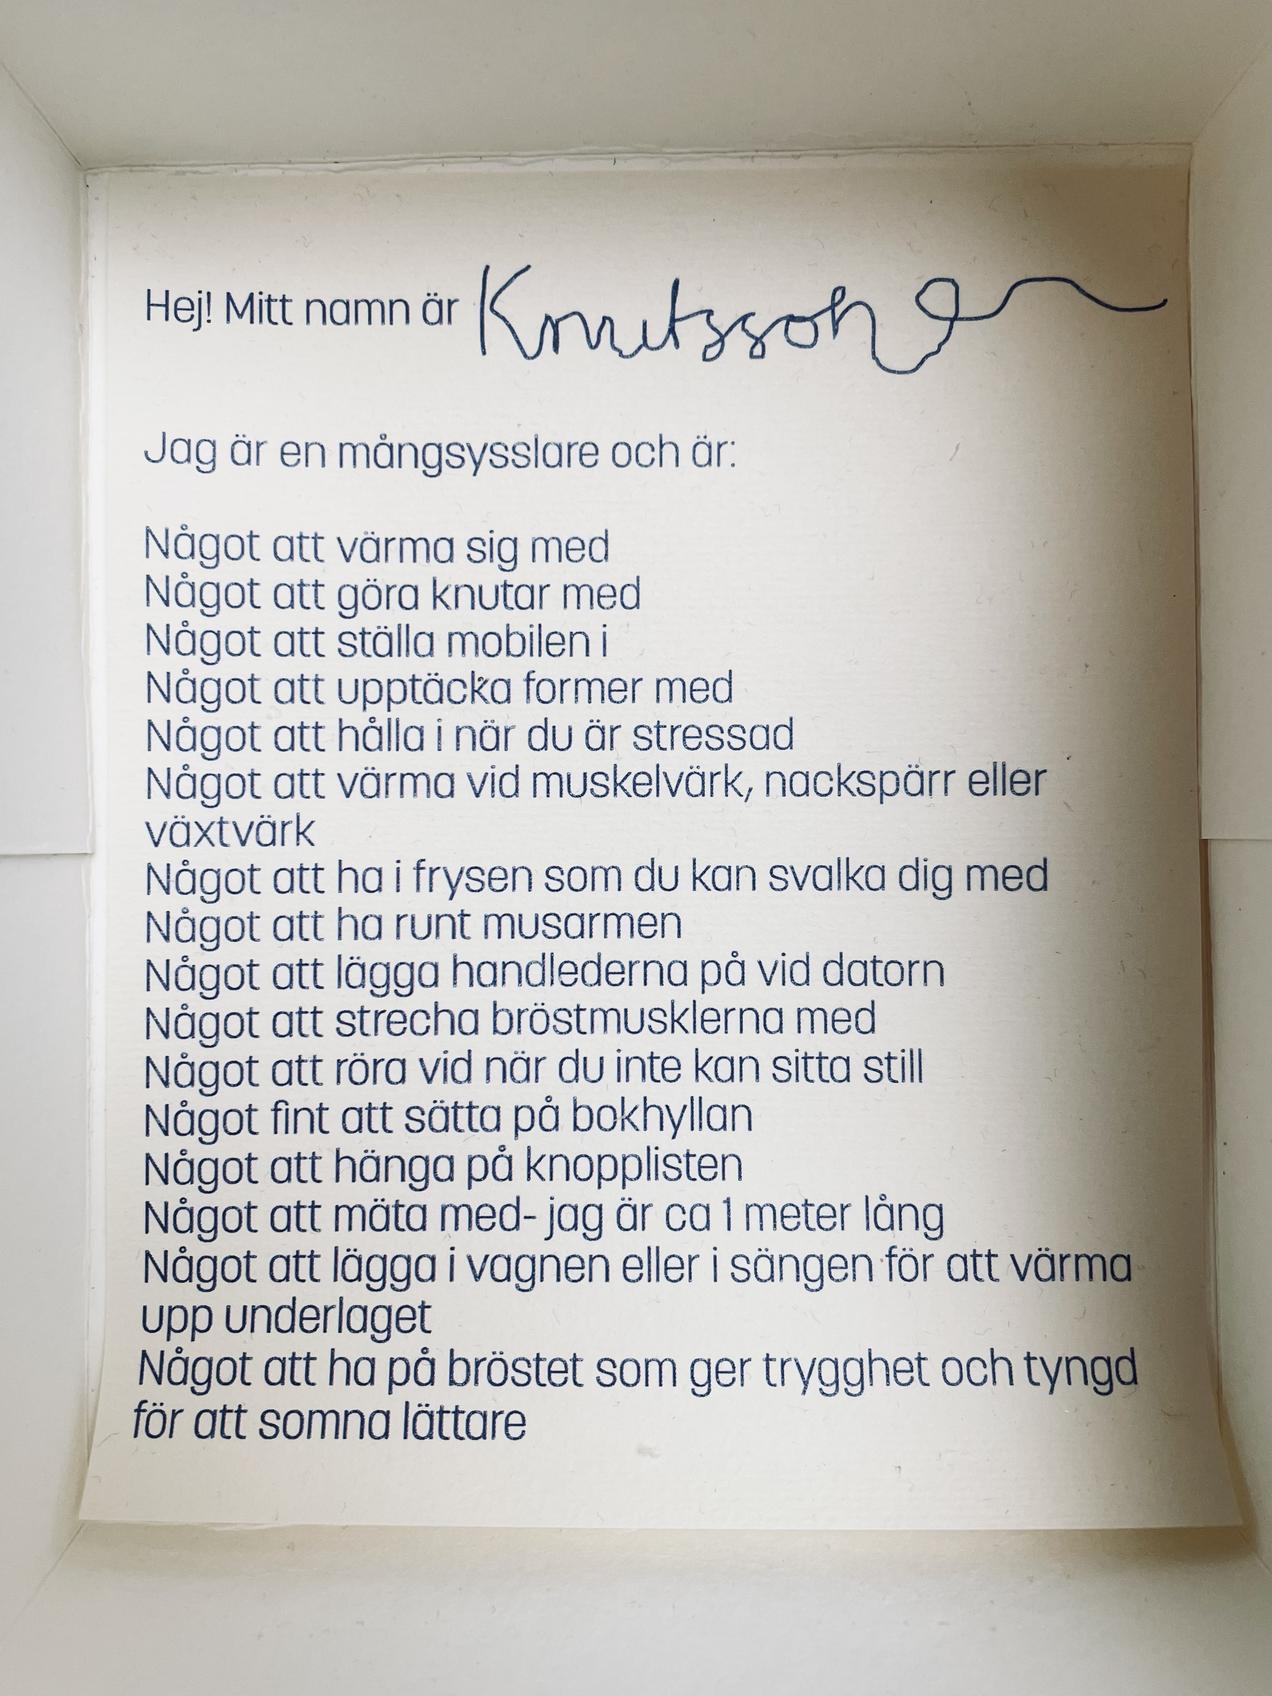 Hej! Mitt namn är Knutsson
Jag är en mångsysslare och är:
Något att värma sig med
Något att göra knutar med
Något att ställa mobilen i
Något att upptäcka former med
Något att hålla i när du är stressad
Något att värma vid muskelvärk, nackspärr eller
växtvärk
Något att ha i frysen som du kan svalka dig med
Något att ha runt musarmen
Något att lägga handlederna på vid datorn
Något att strecha bröstmusklerna med
Något att röra vid när du inte kan sitta still
Något fint att sätta på bokhyllan
Något att hänga på knopplisten
Något att mäta med- jag är ca 1 meter lång
Något att lägga i vagnen eller i sängen för att värma
upp underlaget
Något att ha på bröstet som ger trygghet och tyngd
för att somna lättare